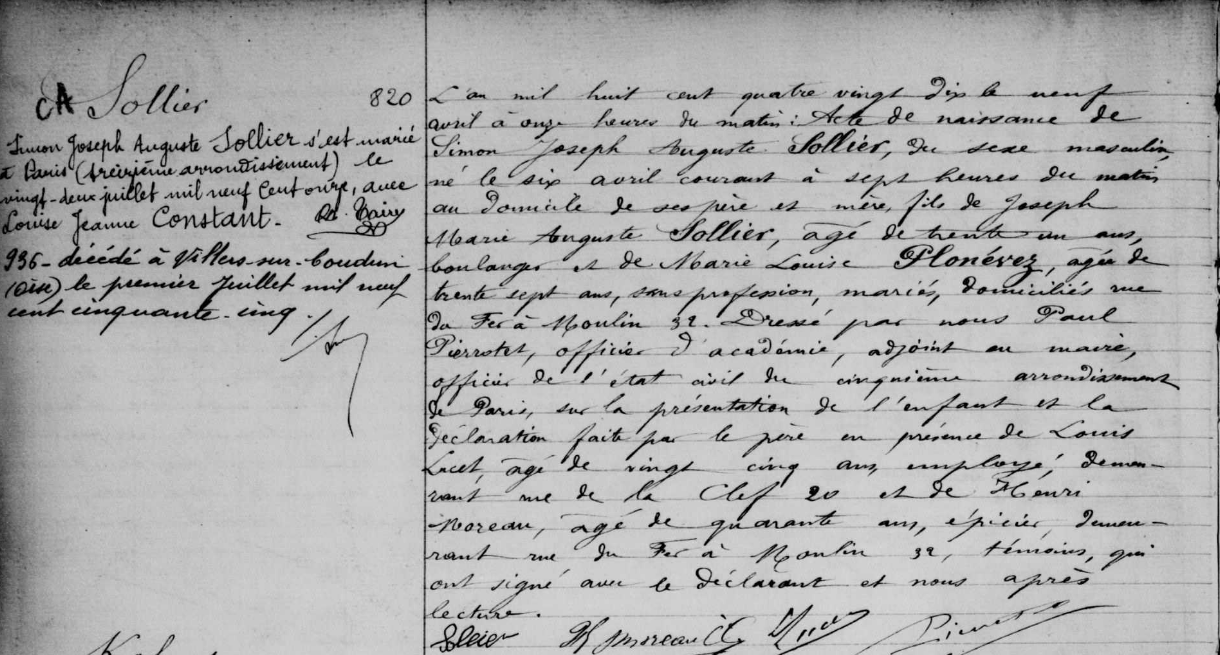 CA Sollier 820
Simon Joseph Auguste Sollier s'est marié
à Paris (treizième arrondissement) le
vingt-deux juillet mil neuf cent onze, avec
Louise Jeanne Constant.-
936 - décédé à Villers-sur-Coudun
(Oise) le premier Juillet mil neuf
cent cinquante-cinq.
L'an mil huit cent quatre vingt dix le neuf
avril à onze heures du matin: Acte de naissance de
Simon Joseph Auguste Sollier, du sexe masculin,
né le six avril courant à sept heures du matin
au domicile de ses père et mère, fils de Joseph
Marie Auguste Sollier, âgé de trente un ans,
boulanger et de Marie Louise Plonévez, agée de
trente sept ans, sans profession, mariés, domiciliés rue
du Fer à Moulin 32. Dressé par nous Paul
Pierrotet, officier d'académie, adjoint au maire,
officier de l'état civil du cinquième arrondissement
de Paris, sur la présentation de l'enfant et la
déclaration faite par le père en présence de Louis
agé de vingt cinq ans, employé, demeu-
rant rue de la Clef 20 et de Henri
Moreau, âgé de quarante ans, épicier, demeu-
rant rue du Fer à Moulin 32, témoins, qui
ont signé avec le déclarant et nous après
lecture.
Moreau